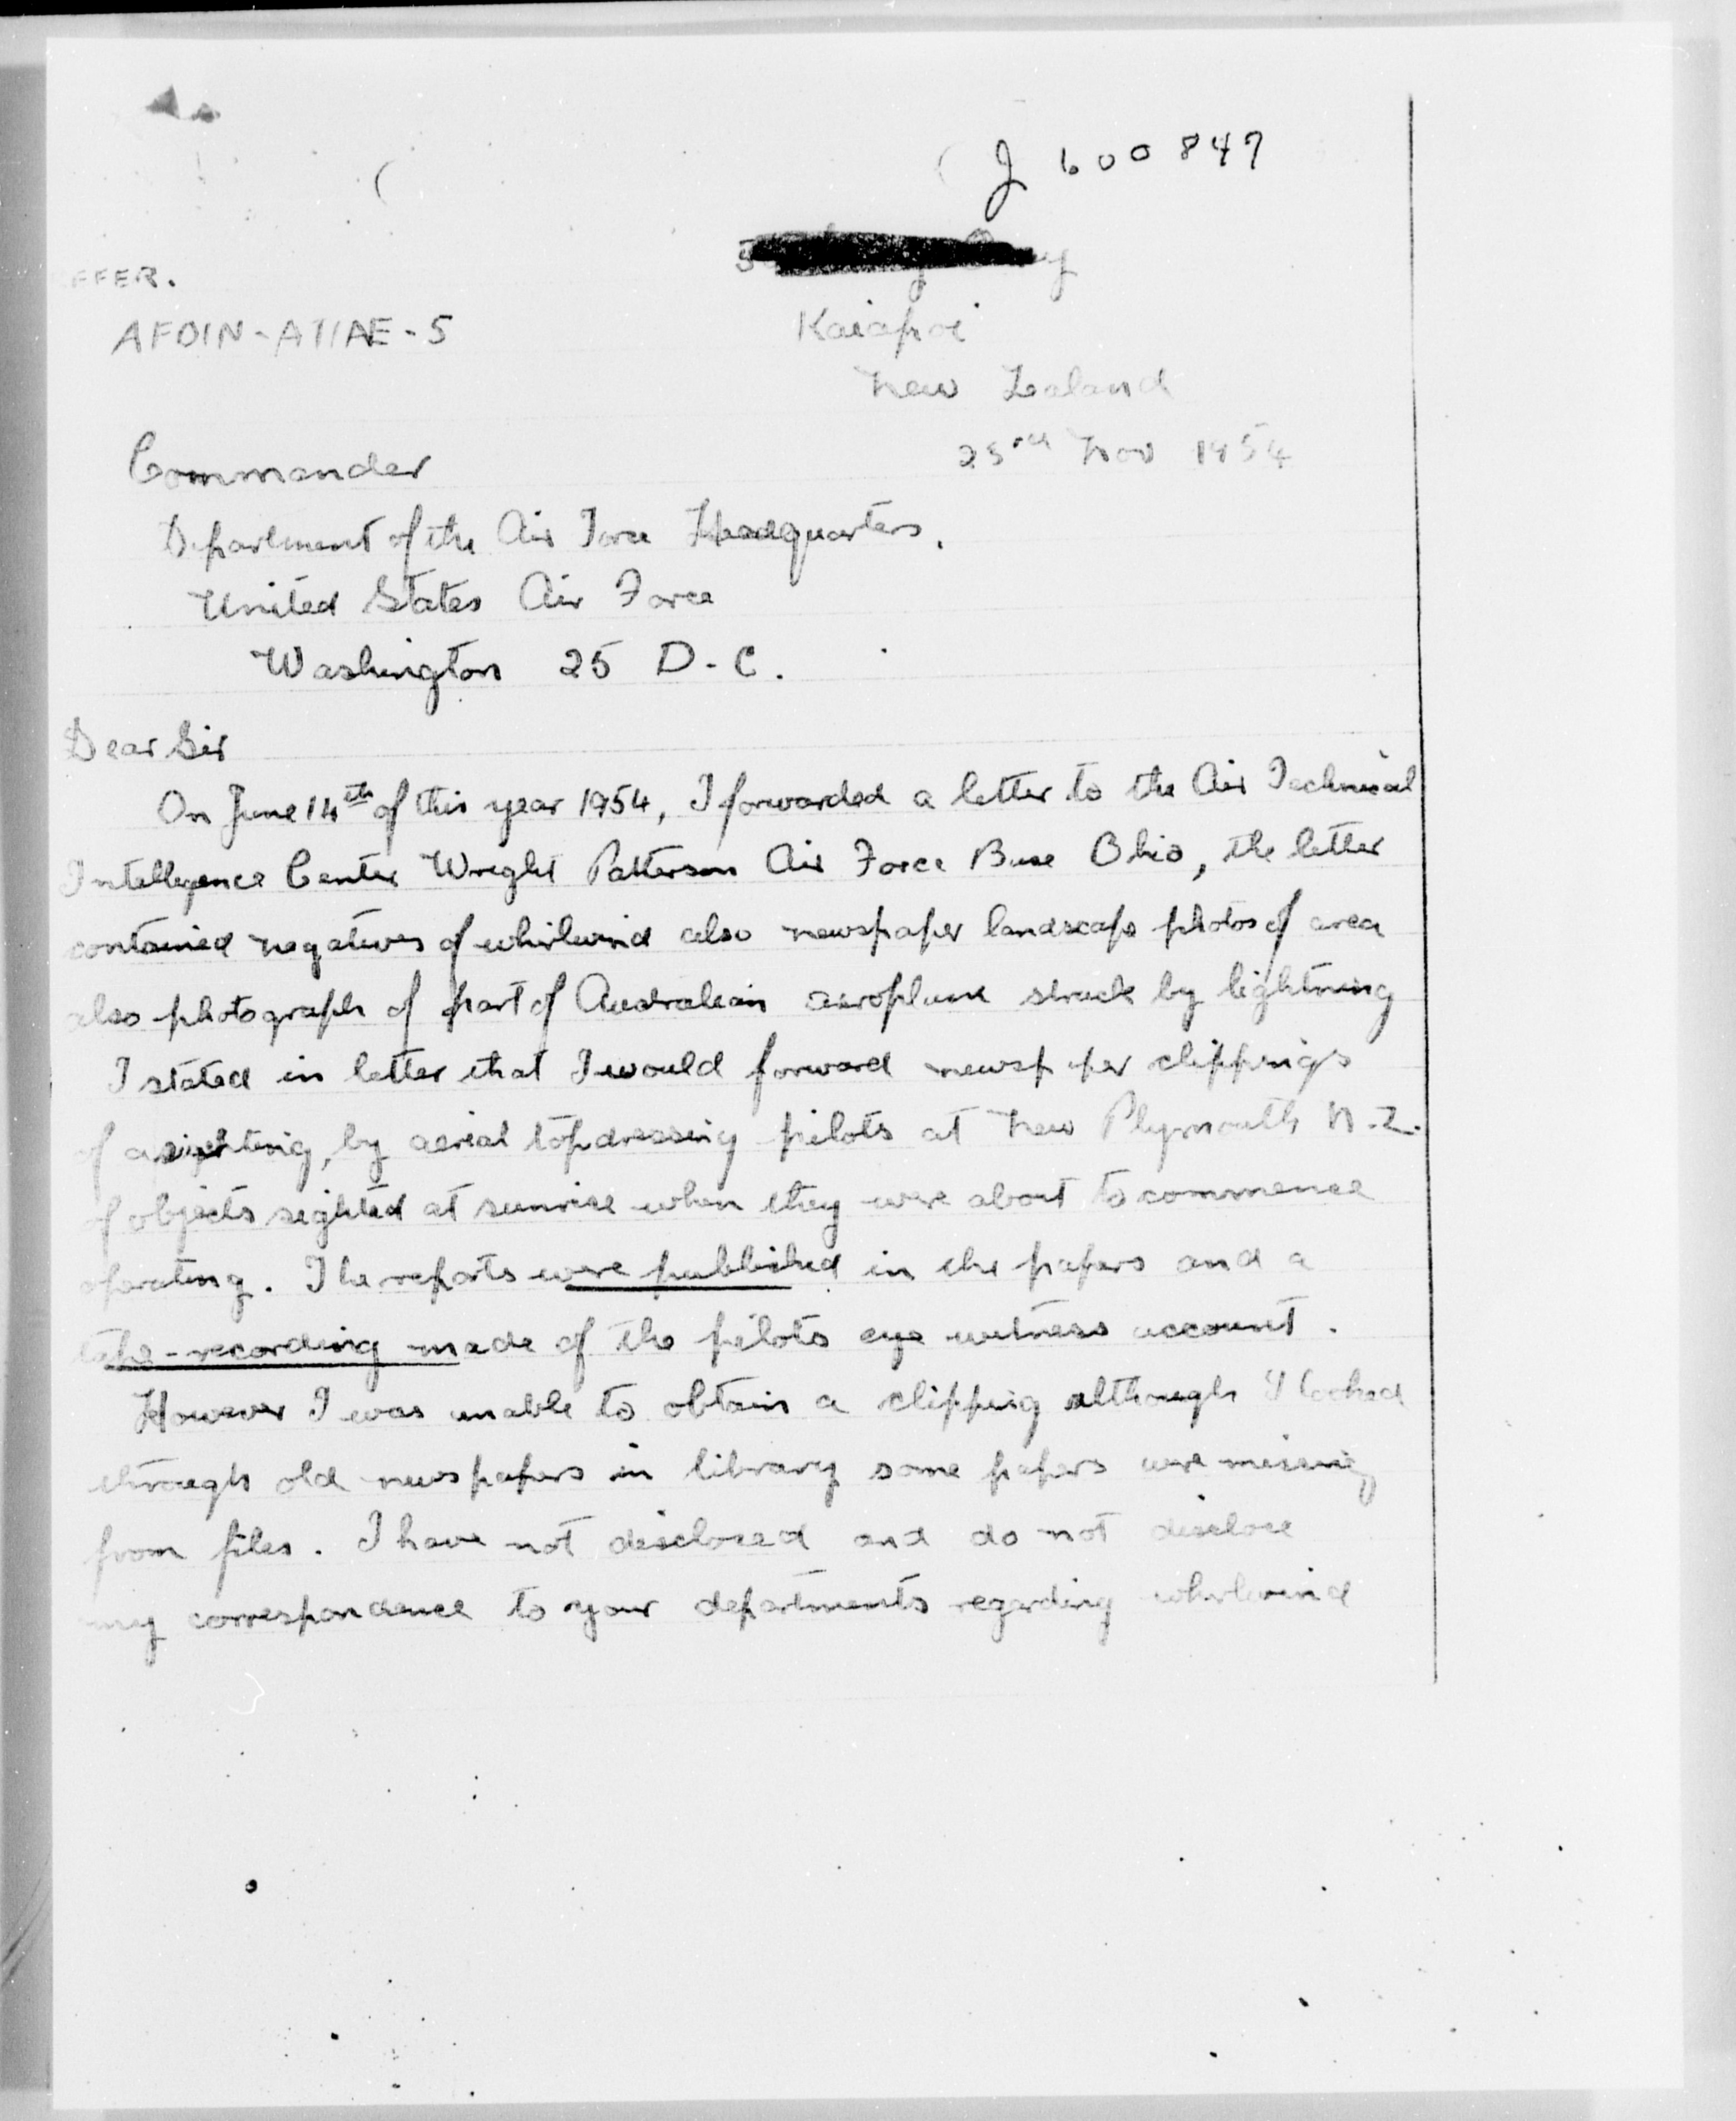 J 600847
EFFER.
AFOIN-ATIAE-5
Kaiapoi
New Zealand
23rd Nov 1954
Commander
Department of the Air Force Headquarters.
United States Air Force
Washington 25 D-C.
Dear Sir
On June 14th of this year 1954, I forwarded a letter to the Air Technical
Intellegence Center Wright Patterson Air Force Base Ohio, the letter
contained negatives of whirlwind also newspaper landscape photos of area
also photograph of part of Australian aeroplane struck by lightning
I stated in letter that I would forward newspaper clippings
of a sighting, by aerial topdressing pilots at New Plymouth N.Z.
of objects sighted at sunrise when they were about to commence
operating. The reports were published in the papers and a
tape-recording made of the pilots eye witness account.
However I was unable to obtain a clipping although I looked
through old newspapers in library some papers were missing
from files. I have not disclosed and do not disclose
my correspondence to your departments regarding whirlwind